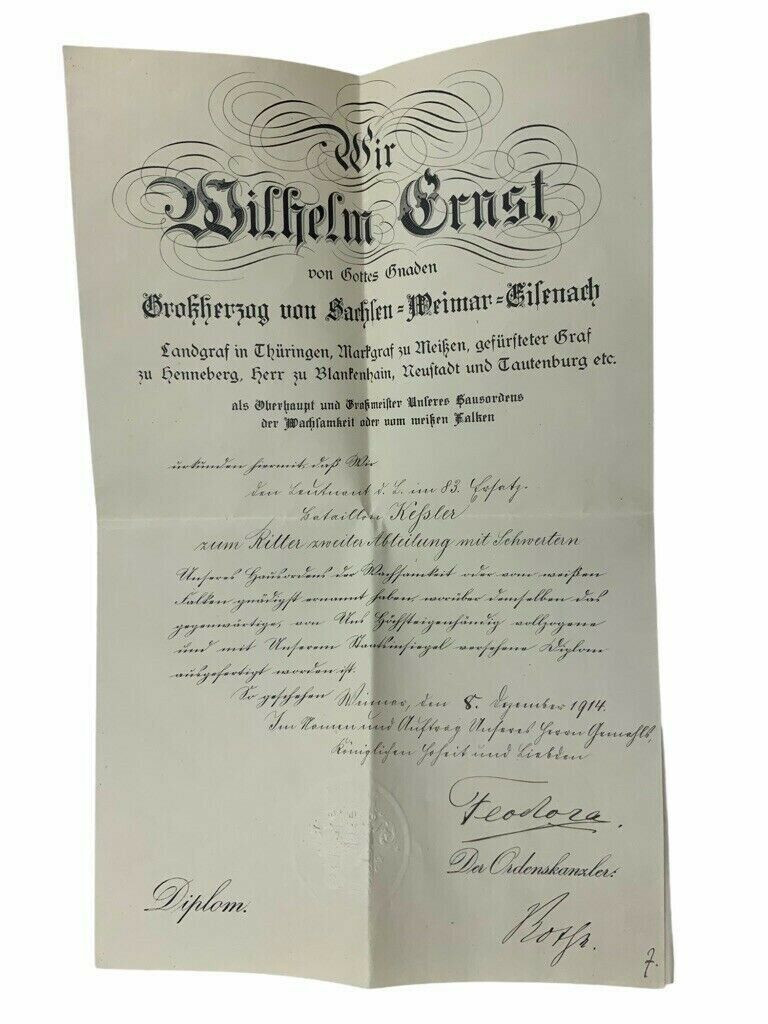 Wir
Wilhelm Ernst,
von Gottes Gnaden
Großherzog von Sachsen-Weimar-Eisenach
Landgraf in Thüringen, Markgraf zu Meißen, gefürsteter Graf
zu Henneberg, Herr zu Blankenhain, Neustadt und Tautenburg etc.
als Oberhaupt und Großmeister Unseres Hausordens
der Wachsamkeit oder vom weißen Falken
urkunden hiermit, daß Wir
den Leutnant d. L. im 83. Ersatz-
Bataillon Keßler
zum Ritter zweiter Abteilung mit Schwertern
Unseres Hausordens der Wachsamkeit oder vom weißen
Falken gnädigst ernannt haben, worüber demselben das
gegenwärtige, von Uns Höchsteigenhändig vollzogene
und mit Unserem Staatsinsiegel versehene Diplom
ausgefertigt worden ist.
So geschehen Weimar, den 8. Dezember 1914.
Im Namen und Auftrag Unseres Herrn Gemahls,
Königlichen Hoheit und Liebden
Feodora.
Der Ordenskanzler:
Diplom.
Rothe.
7.